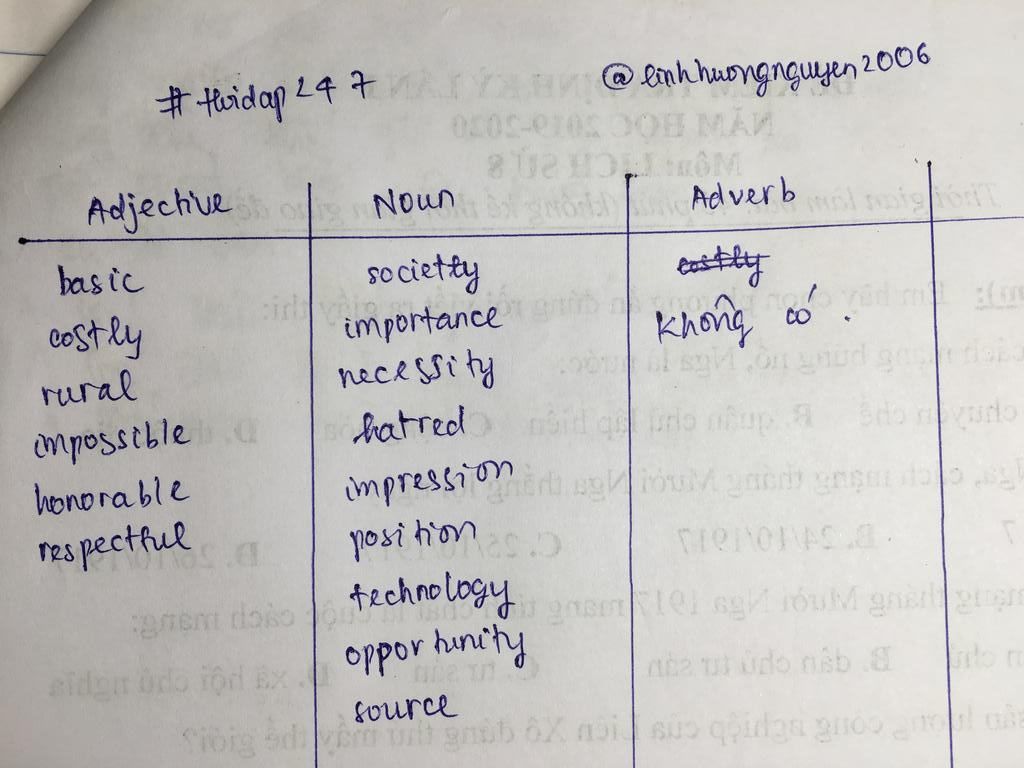 # hoidap 247 @linhhuongnguyen2006
Adjective Noun Adverb
basic societty costly
costly importance không có.
rural necessity
impossible hatred
honorable impression
respectful position
technology
opportunity
source